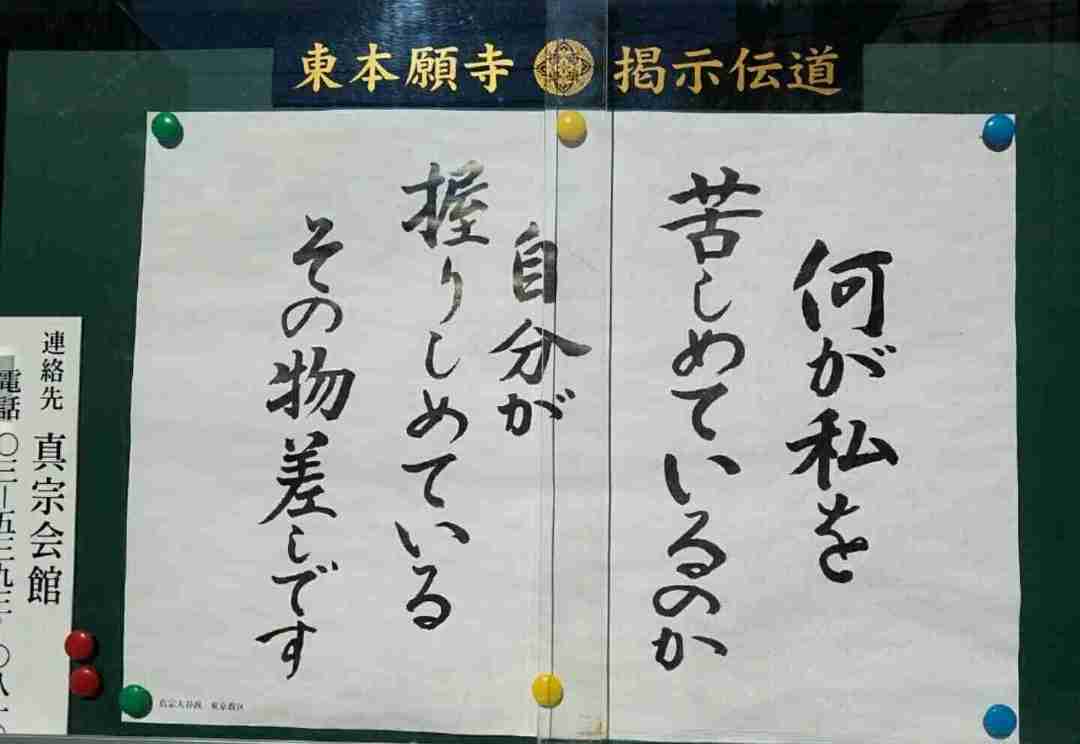 東本願寺 掲示伝道
何が私を
苦しめているのか
自分が
握りしめている
その物差しです
真宗大谷派 東京教区
連絡先 真宗会館
電話 〇三―五三九三・〇八一〇